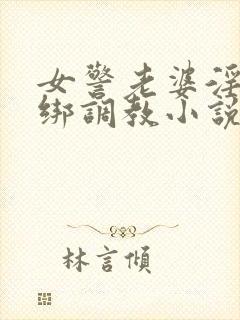 女警老婆淫
绑調教小説
林言傾